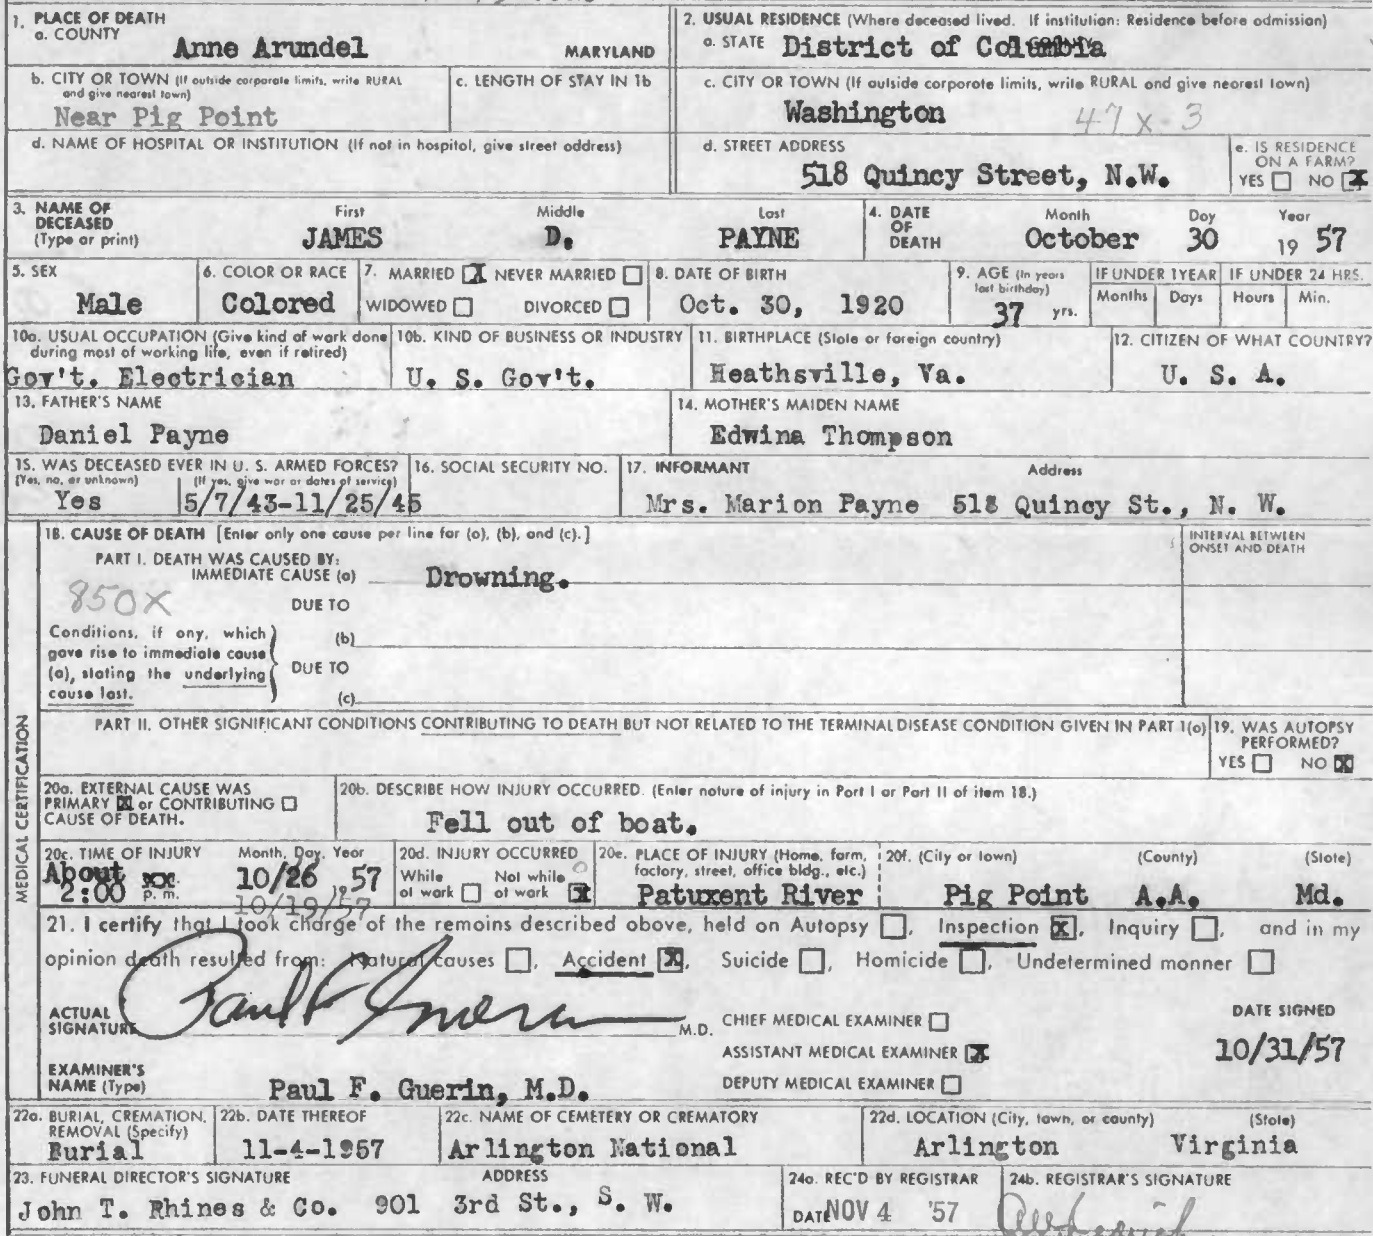 1. PLACE OF DEATH
a. COUNTY
Anne Arundel MARYLAND
2. USUAL RESIDENCE (Where deceased lived. If institution: Residence before admission)
a. STATE District of Columbia
b. CITY OR TOWN (If outside corporate limits, write RURAL and give nearest town)
Near Pig Point
c. LENGTH OF STAY IN 1b
c. CITY OR TOWN (If outside corporate limits, write RURAL and give nearest town)
Washington 47x-3
d. NAME OF HOSPITAL OR INSTITUTION (If not in hospital, give street address)
d. STREET ADDRESS
518 Quincy Street, N.W.
e. IS RESIDENCE ON A FARM?
YES ☐ NO ☒
3. NAME OF DECEASED (Type or print)
First Middle Last
JAMES D. PAYNE
4. DATE OF DEATH
Month Day Year
October 30 19 57
5. SEX
Male
6. COLOR OR RACE
Colored
7. MARRIED ☒ NEVER MARRIED ☐
WIDOWED ☐ DIVORCED ☐
8. DATE OF BIRTH
Oct. 30, 1920
9. AGE (In years last birthday)
37 yrs.
IF UNDER 1 YEAR
Months Days
IF UNDER 24 HRS.
Hours Min.
10a. USUAL OCCUPATION (Give kind of work done during most of working life, even if retired)
Gov't. Electrician
10b. KIND OF BUSINESS OR INDUSTRY
U. S. Gov't.
11. BIRTHPLACE (State or foreign country)
Heathsville, Va.
12. CITIZEN OF WHAT COUNTRY?
U. S. A.
13. FATHER'S NAME
Daniel Payne
14. MOTHER'S MAIDEN NAME
Edwina Thompson
15. WAS DECEASED EVER IN U. S. ARMED FORCES?
(Yes, no, or unknown) (If yes, give war or dates of service)
Yes 5/7/43-11/25/45
16. SOCIAL SECURITY NO.
17. INFORMANT Address
Mrs. Marion Payne 518 Quincy St., N. W.
18. CAUSE OF DEATH [Enter only one cause per line for (a), (b), and (c).]
INTERVAL BETWEEN ONSET AND DEATH
PART I. DEATH WAS CAUSED BY:
IMMEDIATE CAUSE (a) Drowning.
850X
DUE TO
Conditions, if any, which gave rise to immediate cause (a), stating the underlying cause last.
(b)
DUE TO
(c)
PART II. OTHER SIGNIFICANT CONDITIONS CONTRIBUTING TO DEATH BUT NOT RELATED TO THE TERMINAL DISEASE CONDITION GIVEN IN PART 1(a)
19. WAS AUTOPSY PERFORMED?
YES ☐ NO ☒
MEDICAL CERTIFICATION
20a. EXTERNAL CAUSE WAS PRIMARY ☒ or CONTRIBUTING ☐ CAUSE OF DEATH.
20b. DESCRIBE HOW INJURY OCCURRED. (Enter nature of injury in Part I or Part II of item 18.)
Fell out of boat.
20c. TIME OF INJURY Month, Day, Year
About
2:00 p. m. 10/26 19 57
10/19/57
20d. INJURY OCCURRED
While at work ☐ Not while at work ☒
20e. PLACE OF INJURY (Home, farm, factory, street, office bldg., etc.)
Patuxent River
20f. (City or town) (County) (State)
Pig Point A.A. Md.
21. I certify that I took charge of the remains described above, held on Autopsy ☐, Inspection ☒, Inquiry ☐, and in my
opinion death resulted from: Natural causes ☐, Accident ☒, Suicide ☐, Homicide ☐, Undetermined manner ☐
ACTUAL SIGNATURE Paul F Guerin M.D.
CHIEF MEDICAL EXAMINER ☐
ASSISTANT MEDICAL EXAMINER ☒
DEPUTY MEDICAL EXAMINER ☐
DATE SIGNED
10/31/57
EXAMINER'S NAME (Type) Paul F. Guerin, M.D.
22a. BURIAL, CREMATION, REMOVAL (Specify)
Burial
22b. DATE THEREOF
11-4-1957
22c. NAME OF CEMETERY OR CREMATORY
Arlington National
22d. LOCATION (City, town, or county) (State)
Arlington Virginia
23. FUNERAL DIRECTOR'S SIGNATURE ADDRESS
John T. Rhines & Co. 901 3rd St., S. W.
24a. REC'D BY REGISTRAR
DATE NOV 4 '57
24b. REGISTRAR'S SIGNATURE